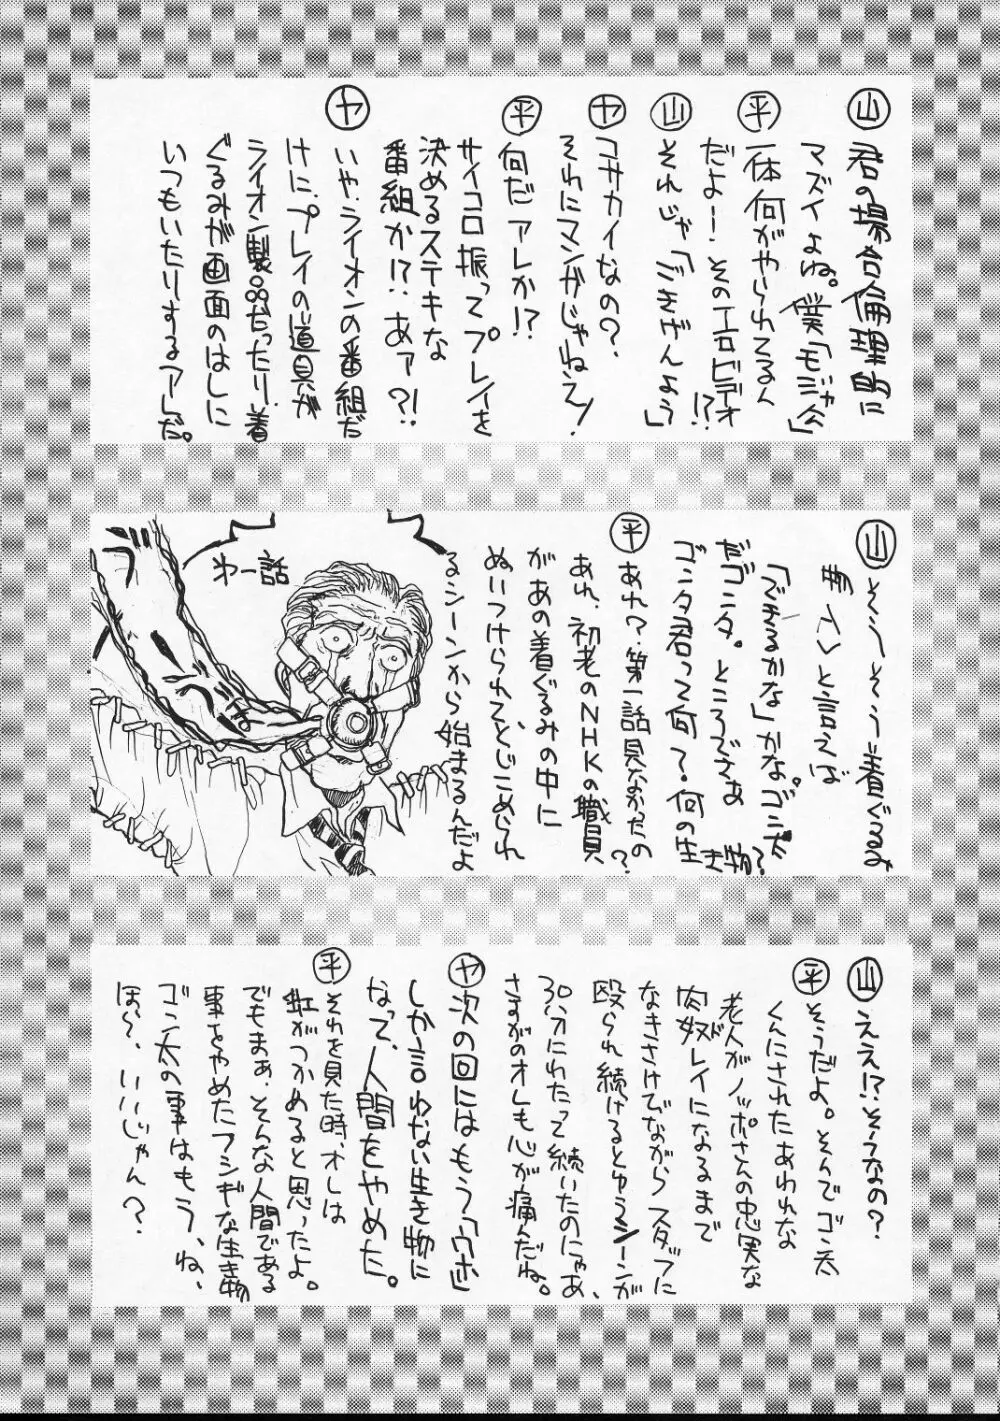 山 君の場合倫理的に
マズイよね。僕「モジャ公」
平 一体何がやられてるん
だよー!そのエロビデオ!?
山 それじゃ「ごきげんよう」
ヤ コサカイなの?
それにマンガじゃねえ!
平 何だアレか!?
サイコロ振ってプレイを
決めるステキな
番組か!?あァ?!!
ヤ いや、ライオンの番組だ
けに、プレイの道具が
ライオン製品だったり、着
ぐるみが画面のはしに
いつもいたりするアレだ。
山 そーうそーう着ぐるみ
と言えば
「できるかな」かな。ゴン太
だゴンタ。ところでさあ
ゴンタ君って何?何の生き物?
平 あれ?第一話見なかったの?
あれ、初老のNHKの職員
があの着ぐるみの中に
ぬいつけられて、とじこめられ
るシーンから始まるんだよ
第一話
山 ええ!?そうなの?
平 そうだよ。そんでゴン太
くんにされたあわれな
老人がノッポさんの忠実な
肉奴レイになるまで
なきさけびながらスタッフに
殴られ続けるとゆうシーンが
30分にわたって続いたのにゃあ、
さすがのオレも心が痛んだね。
ヤ 次の回にはもう「ウホ」
しか言わない生き物に
なって、人間をやめた。
平 それを見た時、オレは
虹がつかめると思ったよ。
でもまぁ、そんな人間である
事をやめたフシギな生き物
ゴン太の事はもう、ね、
ほら、いいじゃん?